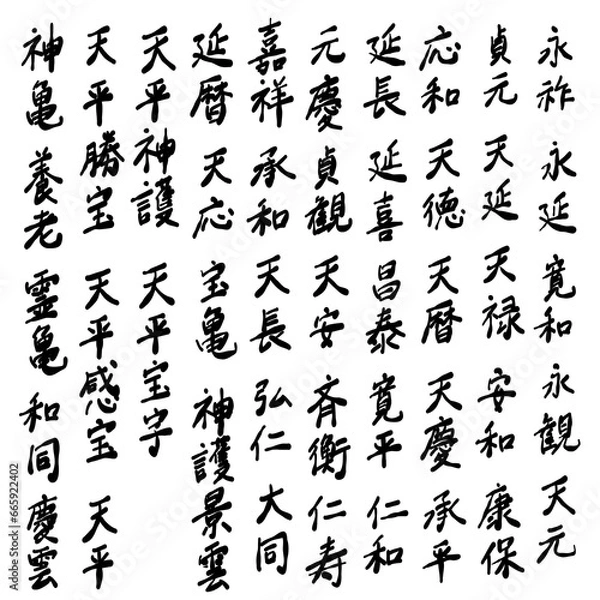 永祚 永延 寛和 永観 天元
貞元 天延 天禄 安和 康保
応和 天徳 天暦 天慶 承平
延長 延喜 昌泰 寛平 仁和
元慶 貞観 天安 斉衡 仁寿
嘉祥 承和 天長 弘仁 大同
延暦 天応 宝亀 神護景雲
天平神護 天平宝字
天平勝宝 天平感宝 天平
神亀 養老 霊亀 和同 慶雲
Adobe Stock | #665922402
Adobe Stock